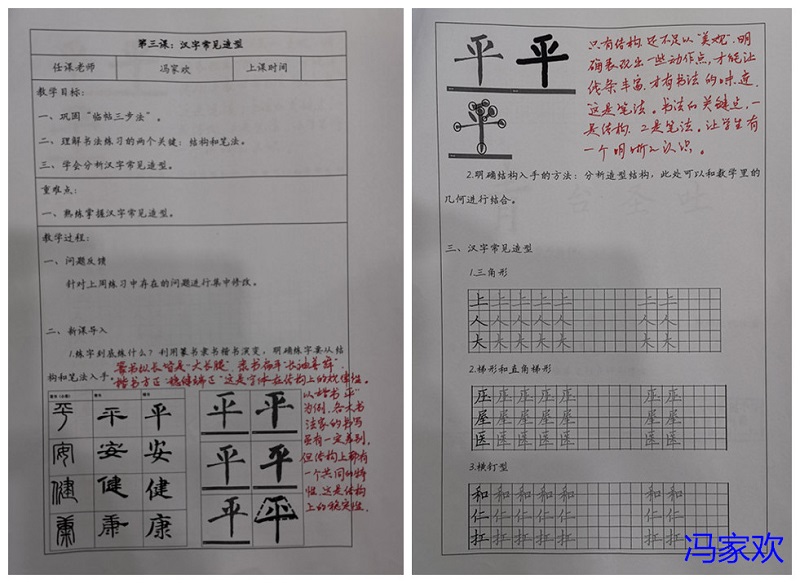 第三课：汉字常见造型
任课老师 冯家欢 上课时间
教学目标：
一、巩固“临帖三步法”。
二、理解书法练习的两个关键：结构和笔法。
三、学会分析汉字常见造型。
重难点：
一、熟练掌握汉字常见造型。
教学过程：
一、问题反馈
针对上周练习中存在的问题进行集中修改。
二、新课导入
1.练字到底练什么？利用篆书隶书楷书演变，明确练字要从结
构和笔法入手。
篆书纵长皆是“大长腿”，隶书扁平“长袖善舞”，
楷书方正“稳健端正”这是字体在结构上的规律性。
以楷书“平”
为例，各大书
法家的书写
虽有一定差别，
但结构上都有
一个共同的特
性，这是结构
上的稳定性。
平 平 平
安 安 安
健 健 健
康 康 康
平 平
平 平
平 平
平 平
只有结构，还不足以“美观”，明
确表现出一些动作点，才能让
线条丰富，才有书法的味道，
这是笔法。书法的关键是，一
是结构，二是笔法。让学生有
一个明晰的认识。
2.明确结构入手的方法：分析造型结构，此处可以和数学里的
几何进行结合。
三、汉字常见造型
1.三角形
上 上 上 上 上 上 上
人 人 人 人 人 人 人
大 大 大 大 大 大 大
2.梯形和直角梯形
庄 庄 庄 庄 庄 庄 庄
屋 屋 屋 屋 屋 屋 屋
医 医 医 医 医 医 医
3.横钉型
和 和 和 和 和 和 和
仁 仁 仁 仁 仁 仁 仁
扛 扛 扛 扛 扛 扛 扛
冯家欢